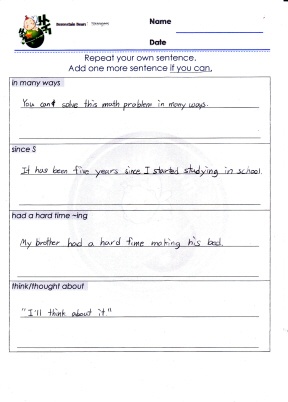 Berenstain Bears
Name
Date
Repeat your own sentence.
Add one more sentence if you can.
in many ways
You can't solve this math problem in many ways.
since S
It has been five years since I started studying in school.
had a hard time ~ing
My brother had a hard time making his bed.
think/thought about
"I'll think about it"